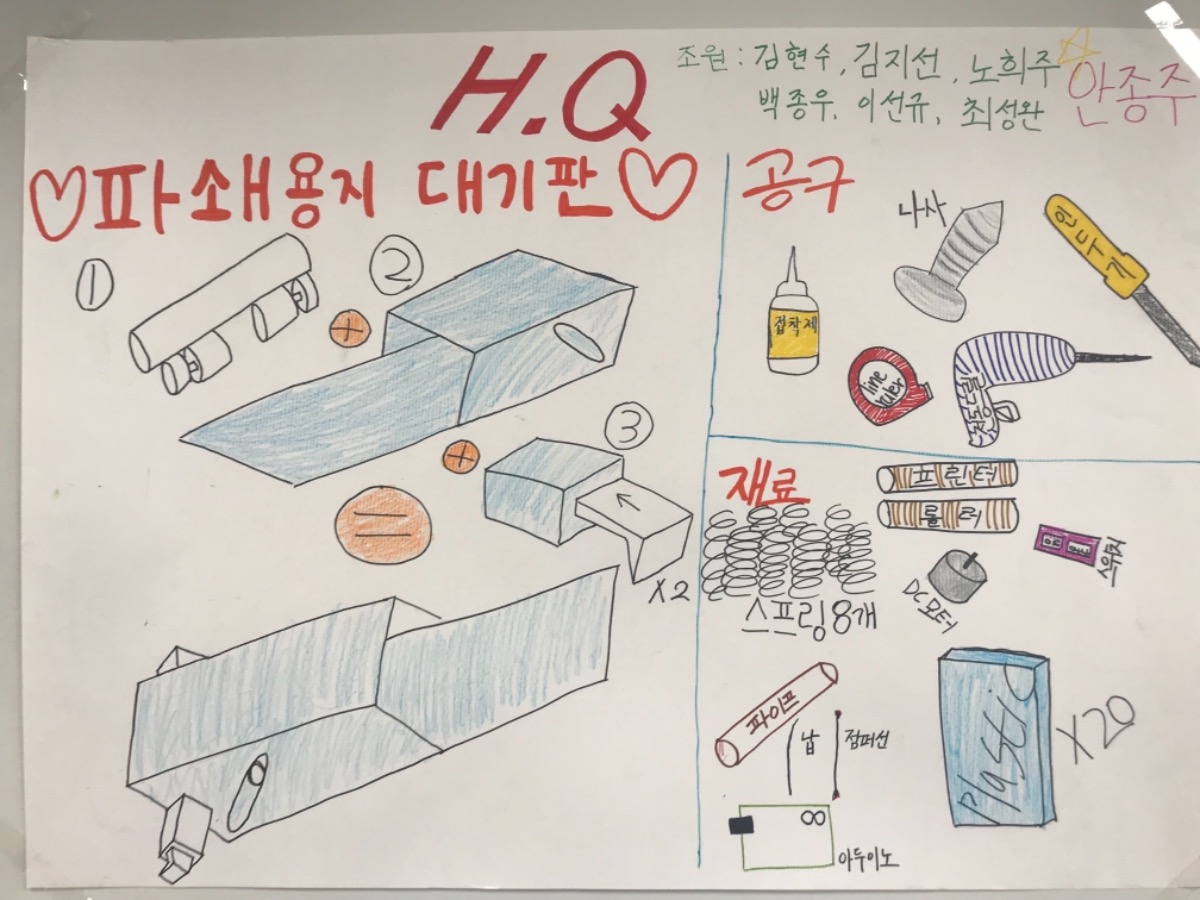 H.Q
조원 : 김현수, 김지선, 노희주
백종우, 이선규, 최성완
안종주
♡파쇄용지 대기판♡
①
②
+
+
③
X2
=
공구
나사
인두기
접착제
line
ruler
전동드릴
재료
프린터
롤러
스위치
DC모터
스프링 8개
파이프
납
점퍼선
아두이노
Plastic
X20